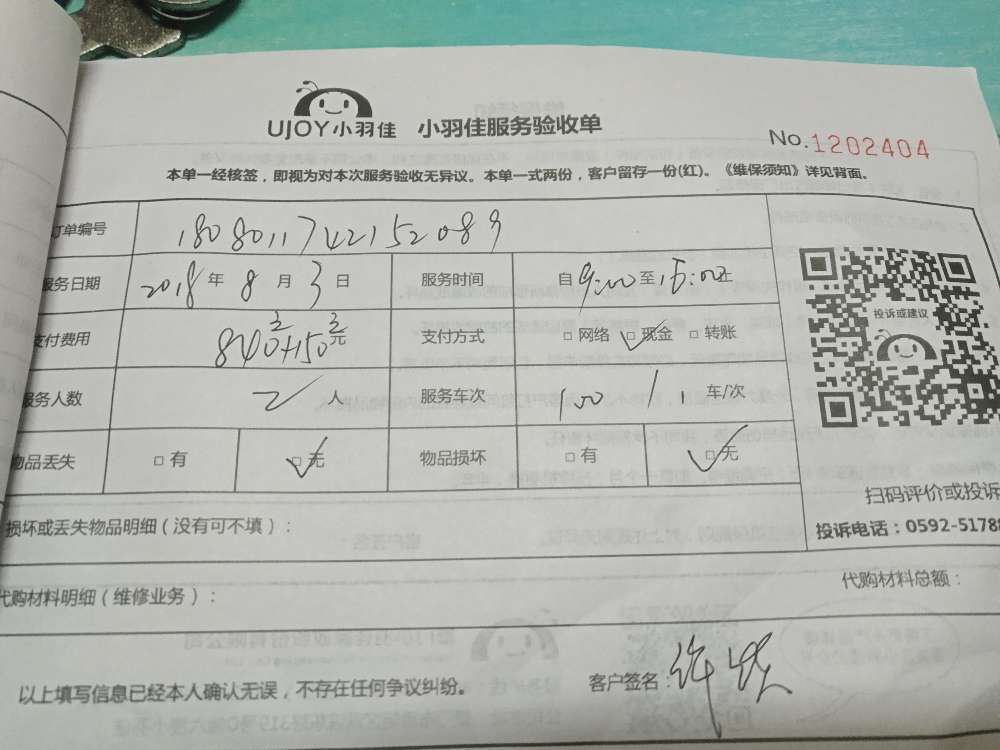 UJOY小羽佳 小羽佳服务验收单
No.1202404
本单一经核签，即视为对本次服务验收无异议。本单一式两份，客户留存一份(红)。《维保须知》详见背面。
订单编号 1808011742152089
服务日期 2018年8月3日 服务时间 自9:00至15:00止
支付费用 840元+150元 支付方式 □网络 □现金 □转账
服务人数 2人 服务车次 100 / 1 车/次
物品丢失 □有 □无 物品损坏 □有 □无
投诉或建议
扫码评价或投诉
投诉电话：0592-5178
损坏或丢失物品明细（没有可不填）：
代购材料明细（维修业务）：
代购材料总额：
以上填写信息已经本人确认无误，不存在任何争议纠纷。
客户签名：许